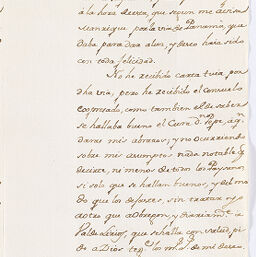 a la hora de esta, que segun me decia
Manrique, por la via de Panamá, que
daba para dar a luz, y Pareo havia sido
con toda felicidad.
No he recibido carta tuia, por
dha via, pero he recibido el consuelo
expresado, como tambien el de saber
se hallaba bueno el Cura dⁿ Pepe, a qⁿ
daras mis abrazos; y no ocurriendo
sobre mis asumptos nada notable q
decirte, ni menos de todos los Paysanos,
si solo que se hallan buenos, y del mo
do que los dexaste, sin tratar
de otro que a Obregon, y diariamᵗᵉ a
Valdelirios, que se halla con salud, pi
do a Dios te gᵉ los mˢ aˢ de mi deseo.